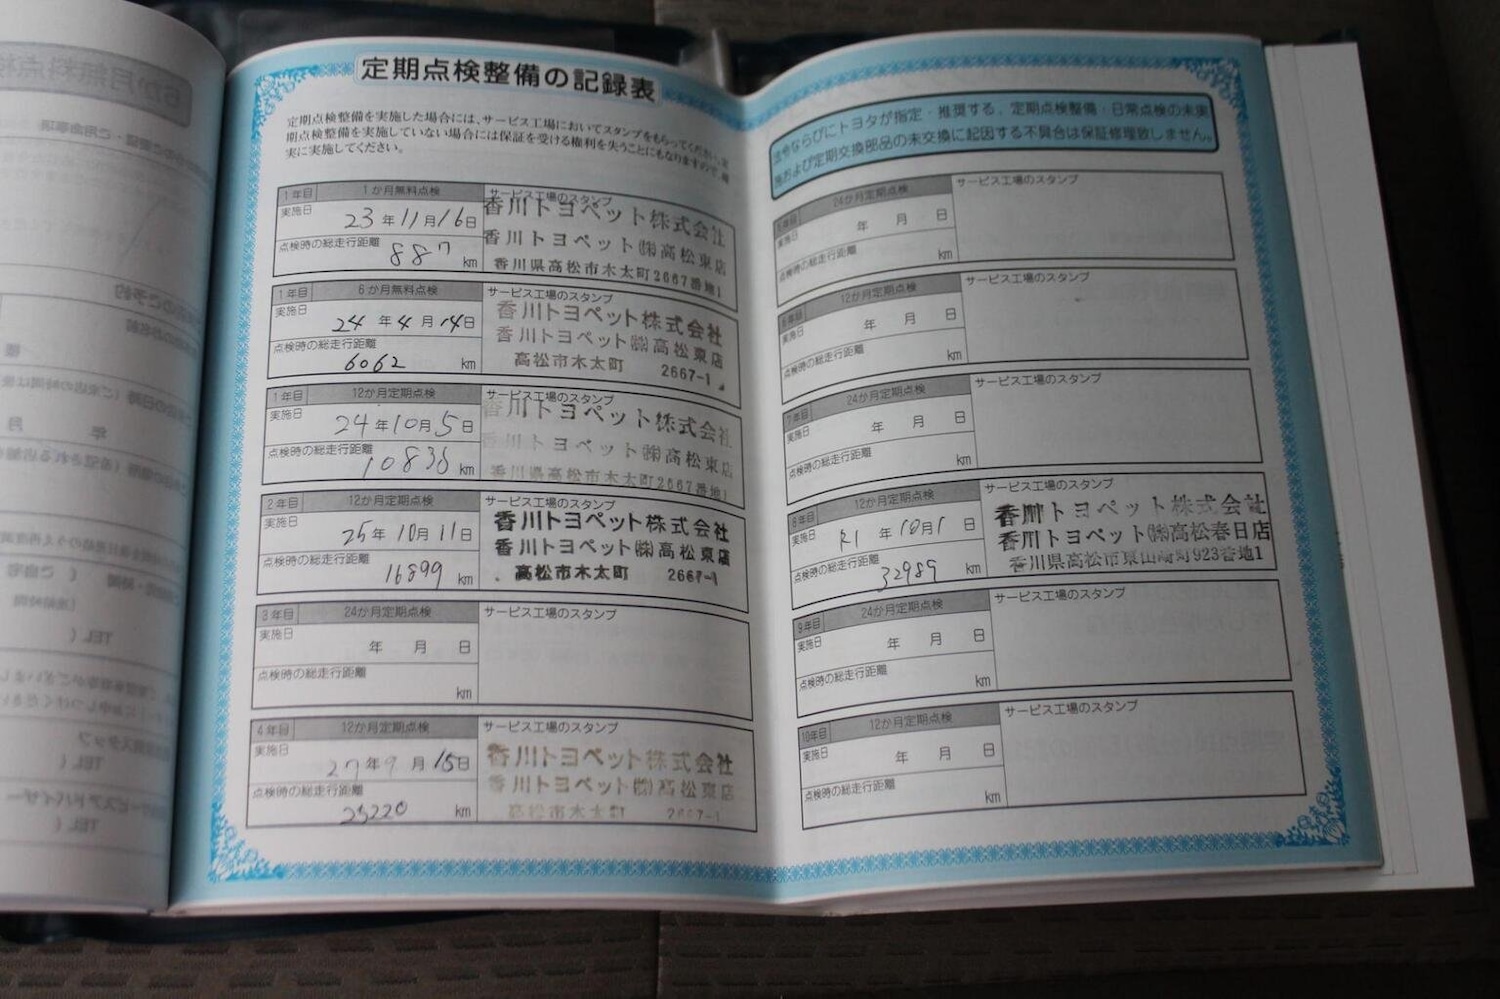 定期点検整備の記録表
定期点検整備を実施した場合には、サービス工場においてスタンプをもらってください。定
期点検整備を実施していない場合には保証を受ける権利を失うことにもなりますので、確
実に実施してください。
1年目 1か月無料点検 サービス工場のスタンプ
実施日 23年11月16日
点検時の総走行距離 887 km
香川トヨペット株式会社
香川トヨペット㈱高松東店
香川県高松市木太町2667番地1
1年目 6か月無料点検 サービス工場のスタンプ
実施日 24年4月14日
点検時の総走行距離 6062 km
香川トヨペット株式会社
香川トヨペット㈱高松東店
高松市木太町 2667-1
1年目 12か月定期点検 サービス工場のスタンプ
実施日 24年10月5日
点検時の総走行距離 10838 km
香川トヨペット株式会社
香川トヨペット㈱高松東店
香川県高松市木太町2667番地1
2年目 12か月定期点検 サービス工場のスタンプ
実施日 25年10月11日
点検時の総走行距離 16899 km
香川トヨペット株式会社
香川トヨペット㈱高松東店
高松市木太町 2667-1
3年目 24か月定期点検 サービス工場のスタンプ
実施日 年 月 日
点検時の総走行距離 km
4年目 12か月定期点検 サービス工場のスタンプ
実施日 27年9月15日
点検時の総走行距離 25220 km
香川トヨペット株式会社
香川トヨペット㈱高松東店
高松市木太町 2667-1
法令ならびにトヨタが指定・推奨する、定期点検整備・日常点検の未実
施および定期交換部品の未交換に起因する不具合は保証修理致しません。
5年目 24か月定期点検 サービス工場のスタンプ
実施日 年 月 日
点検時の総走行距離 km
6年目 12か月定期点検 サービス工場のスタンプ
実施日 年 月 日
点検時の総走行距離 km
7年目 24か月定期点検 サービス工場のスタンプ
実施日 年 月 日
点検時の総走行距離 km
8年目 12か月定期点検 サービス工場のスタンプ
実施日 R1年10月1日
点検時の総走行距離 32989 km
香川トヨペット株式会社
香川トヨペット㈱高松春日店
香川県高松市東山崎町923番地1
9年目 24か月定期点検 サービス工場のスタンプ
実施日 年 月 日
点検時の総走行距離 km
10年目 12か月定期点検 サービス工場のスタンプ
実施日 年 月 日
点検時の総走行距離 km